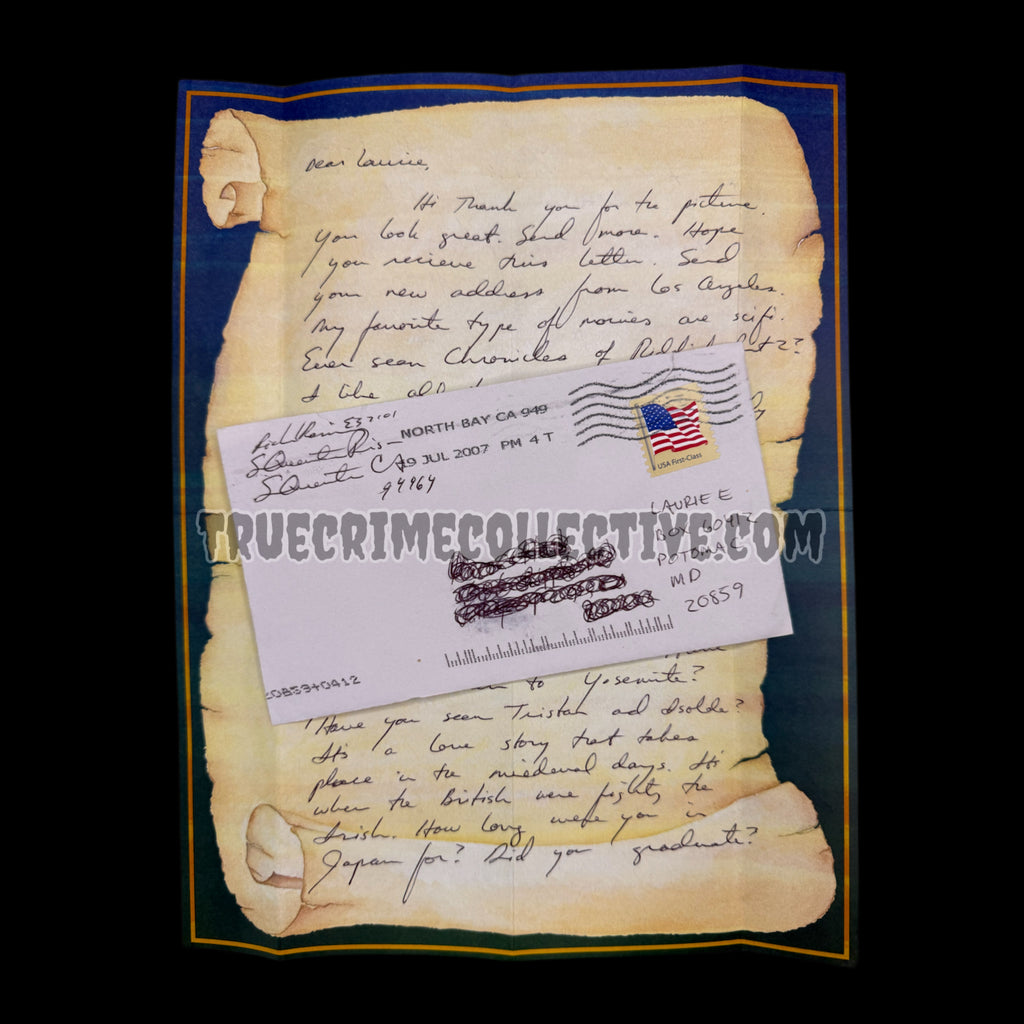 Dear Laurie,
Hi Thank you for the picture.
you look great. Send more. Hope
you recieve this letter. Send
your new address from Los Angeles.
My favorite type of movies are scifi.
Ever seen Chronicles of
I like all
NORTH BAY CA 949
19 JUL 2007 PM 4 T
S Quentin
S Quentin CA
94964
USA First-Class
LAURIE E
BOX 60412
POTOMAC
MD
20859
TRUECRIMECOLLECTIVE.COM
20859+0412
to Yosemite?
Have you seen Tristan and Isolde?
It's a love story that takes
place in the mideval days. It's
when the British were fighting the
Irish. How long were you in
Japan for? Did you graduate?